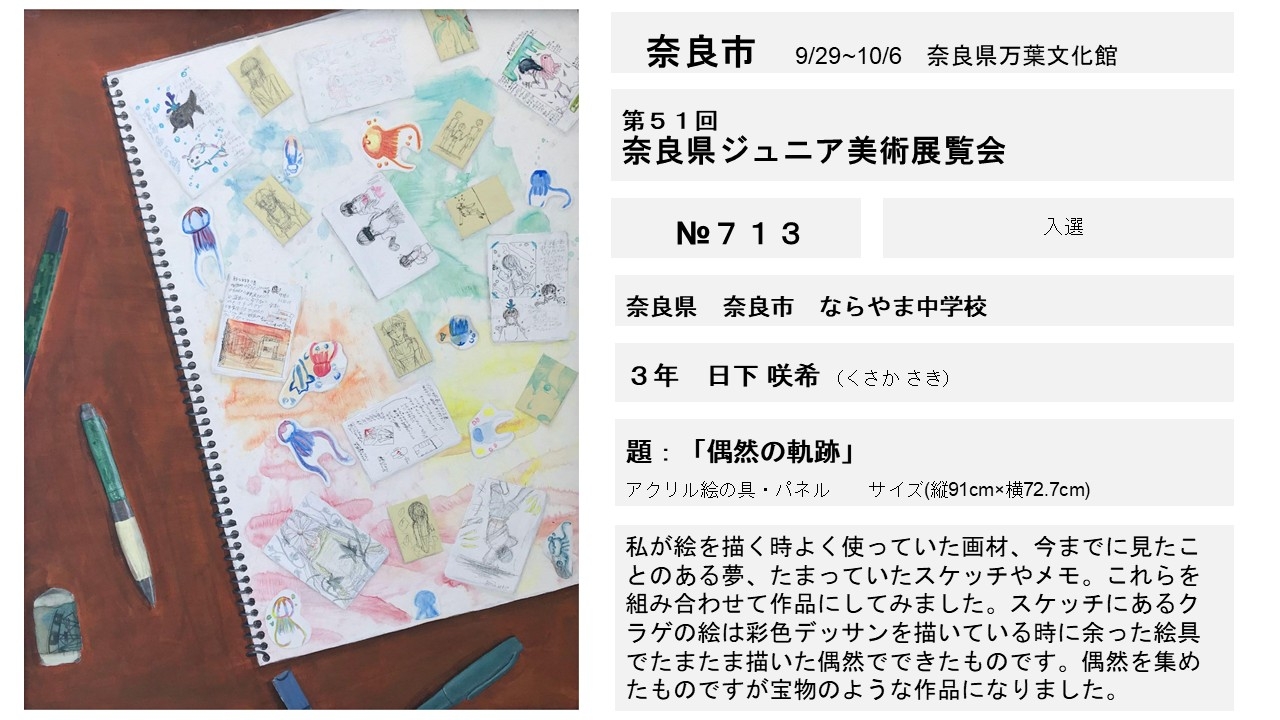 奈良市　9/29~10/6　奈良県万葉文化館
第５１回
奈良県ジュニア美術展覧会
№７１３
入選
奈良県　奈良市　ならやま中学校
３年　日下 咲希 （くさか さき）
題：「偶然の軌跡」
アクリル絵の具・パネル　　サイズ(縦91cm×横72.7cm)
私が絵を描く時よく使っていた画材、今までに見たこ
とのある夢、たまっていたスケッチやメモ。これらを
組み合わせて作品にしてみました。スケッチにあるク
ラゲの絵は彩色デッサンを描いている時に余った絵具
でたまたま描いた偶然でできたものです。偶然を集め
たものですが宝物のような作品になりました。